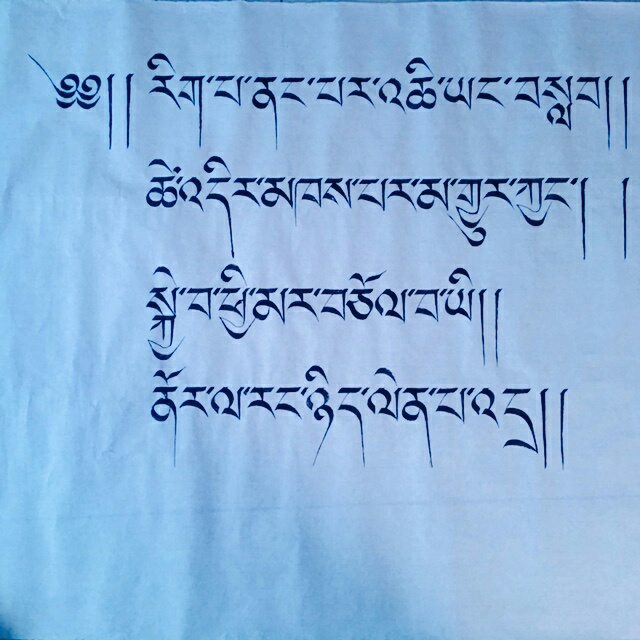 ༄༅།། རིག་པ་ནང་པར་འཆི་ཡང་བསླབ།།
ཚེ་འདིར་མཁས་པར་མ་གྱུར་ཀྱང་། །
སྐྱེ་བ་ཕྱི་མར་བཅོལ་བ་ཡི།།
ནོར་ལ་རང་ཉིད་ལེན་པ་འདྲ།།